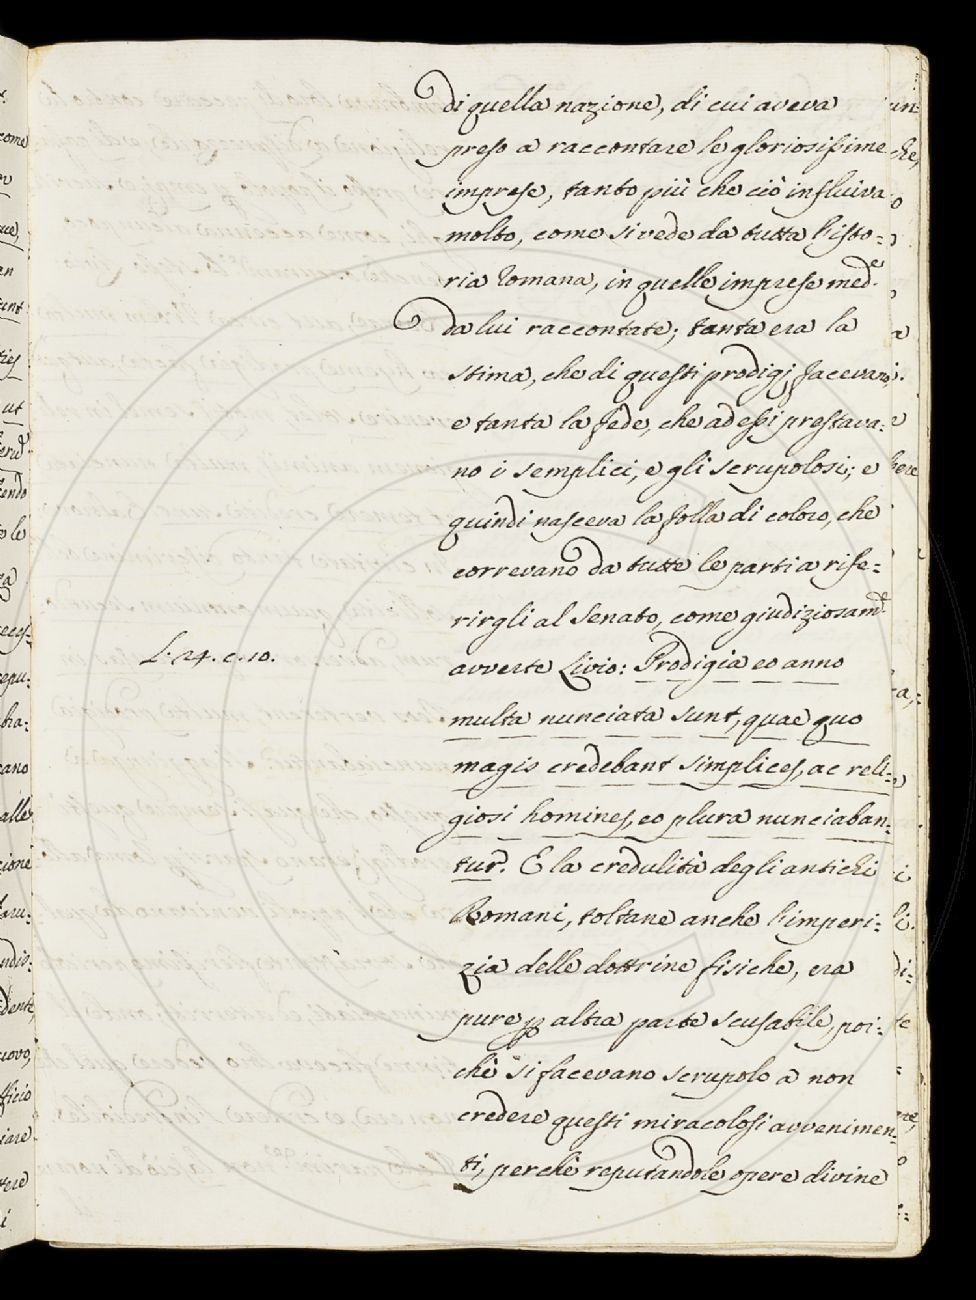 di quella nazione, di cui aveva
preso a raccontare le gloriosissime
imprese, tanto più che ciò influiva
molto, come si vede da tutta l'isto=
ria Romana, in quelle imprese med.e
da lui raccontate; tanta era la
stima, che di questi prodigj facevano,
e tanta la fede, che ad essi prestava=
no i semplici, e gli scrupolosi; e
quindi nasceva la folla di coloro, che
correvano da tutte le parti a rife=
rirgli al Senato, come giudiziosam.e
L. 24. c. 10.
avverte Livio: Prodigia eo anno
multa nunciata sunt, quae quo
magis credebant simplices, ac reli=
giosi homines, eo plura nunciaban=
tur. E la credulità degli antichi
Romani, toltane anche l'imperi=
zia delle dottrine fisiche, era
pure altra parte scusabile, poi=
chè si facevano scrupolo a non
credere questi miracolosi avvenimen=
ti, perchè reputandole opere divine